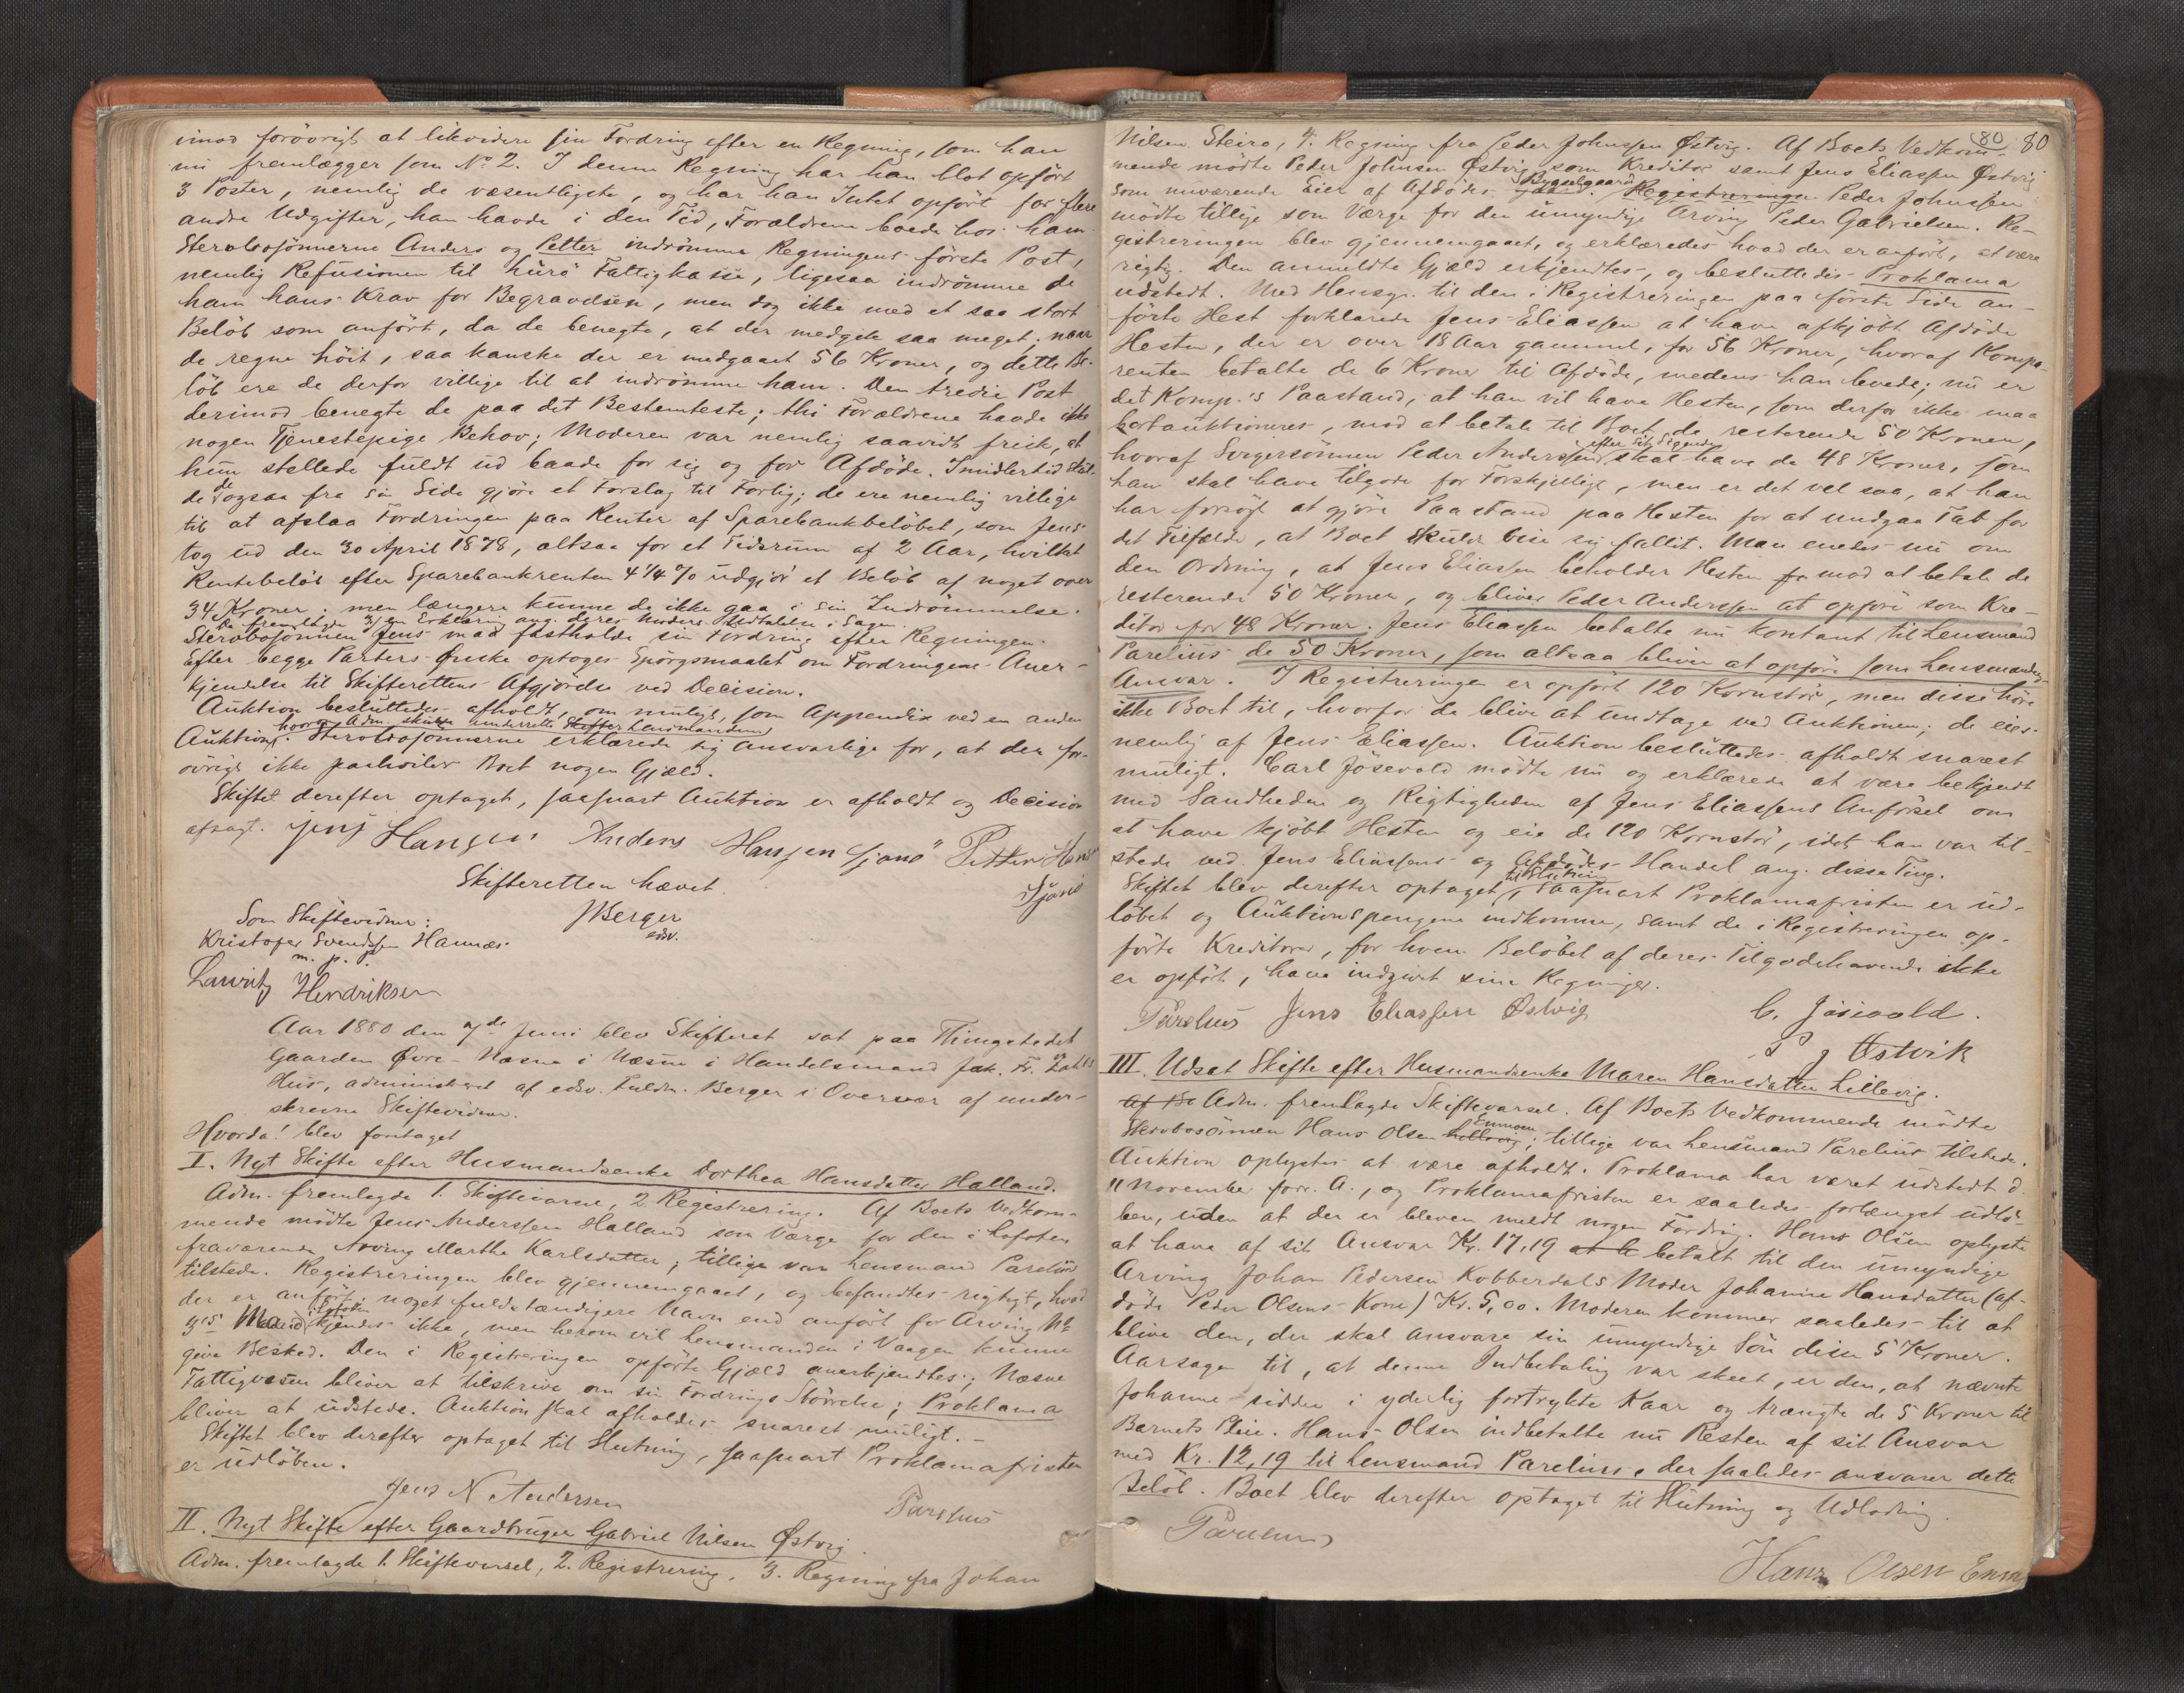 imod forövrigt at likvidere sin Fordring efter en Regning, som han
nu fremlægger som No 2. I denne Regning har han blot opfört
3 Poster, nemlig de væsentligste, og har han Intet opfört for flere
andre Udgifter, han havde i den Tid, Forældrene boede hos ham.
Stervbosönnerne Anders og Petter indrömme Regningens förste Post,
nemlig Refusionen til Lurö Fattigkasse, ligesaa indrömme de
ham hans Krav for Begravelsen, men dog ikke med et saa stort
Belöb som anfört, da de benegte, at der medgik saa meget; naar
de regne höit, saa kanske der er medgaaet 56 Kroner, og dette Be-
löb ere de derfor villige til at indrömme ham. Den tredie Post
derimod benegte de paa det Bestemteste; thi Forældrene havde ikke
nogen Tjenestepige Behov; Moderen var nemlig saavidt frisk, at
hun stellede fuldt ud baade for sig og for Afdöde. Imidlertid skul-
de de ogsaa fra sin Side gjöre et Forslag til Forlig; de ere nemlig villige
til at afslaa Fordringen paa Renter af Sparebankbelöbet, som Jens
tog ud den 30 April 1878, altsaa for et Tidsrum af 2 Aar, hvilket
Rentebelöb efter Sparebankrenten 4 1/4 % udgjör et Belöb af noget over
34 Kroner; men længere kunne de ikke gaa i sin Indrömmelse.
De fremlagde 3) en Erklæring ang. deres Moders Udtalelse i Sagen
Stervbosönnen Jens maa fastholde sin Fordring efter Regningen.
Efter begge Parters Önske optoges Spörgsmaalet om Fordringens Aner-
kjendelse til Skifterettens Afgjörelse ved Decision.
Auktion besluttedes afholdt, om muligt, som Appendix ved en anden
hvorom Adm. skulde underrette Skifter Lensmanden
Auktion. Stervbosönnerne erklærede sig ansvarlige for, at der for-
övrigt ikke paahviler Boet nogen Gjæld.
Skiftet derefter optaget, saasnart Auktion er afholdt og Decision
afsagt. Jens Hansen Anders Hansen Sjonö Petter Hans
Sjonö
Skifteretten hævet.
JBerger
edsv.
Som Skiftevidner:
Kristofer Svendsen Hamnæs.
m. p. P.
Lauritz Hendriksen
Aar 1880 den 7de Juni blev Skifteret sat paa Thingstedet
Gaarden Övre-Næsna i Næsne i Handelsmand Jak. Fr. Zahls
Hus, administreret af edsv. Fuldm. Berger i Overvær af under-
skrevne Skiftevidner.
Hvorda! blev foretaget
I. Nyt Skifte efter Husmandsenke Dorthea Hansdatter Halland.
Adm. fremlagde 1. Skiftevarsel, 2. Registrering. Af Boets Vedkom-
mende mödte Jens Anderssen Halland som Værge for den i Lofoten
fraværende Arving Marthe Karlsdatter; tillige var Lensmand Parelius
tilstede. Registreringen blev gjennemgaaet, og befandtes rigtigt, hvad
der er anfört; noget fuldstændigere Navn end anfört for Arving No
3's Mand i Lofoten kjendes ikke, men herom vil Lensmanden i Vaagen kunne
give Besked. Den i Registreringen opförte Gjæld anerkjendtes; Næsne
Fattigvæsen bliver at tilskrive om sin Fordrings Störrelse; Proklama
bliver at udstede. Auktion skal afholdes snarest muligt.-
Skiftet blev derefter optaget til Slutning, saasnart Proklamafristen
er udlöben.
Jens N Andersen
Parelius
II. Nyt Skifte efter Gaardbruger Gabriel Nilsen Östvig.
Adm. fremlagde 1. Skiftevarsel, 2. Registrering, 3. Regning fra Johan
80 80
Nilsen Steiro, 4. Regning fra Peder Johnsen Östvig. Af Boets Vedkom-
mende mödte Peder Johnsen Östvig som Kreditor samt Jens Eliassen Östvig
som nuværende Eier af Afdödes Bygselgaard. Registreringen Peder Johnsen
mödte tillige som Værge for den umyndige Arving Peder Gabrielsen. Re-
gistreringen blev gjennemgaaet, og erklæredes hvad der er anfört, at være
rigtig. Den anmeldte Gjæld erkjendtes, og besluttedes Proklama
udstedt. Med Hensyn til den i Registreringen paa förste Side an-
förte Hest forklarede Jens Eliassen at have afkjöbt Afdöde
Hesten, der er over 18 Aar gammel, for 56 Kroner, hvoraf Kompa-
renten betalte de 6 Kroner til Afdöde, medens han levede; nu er
det Komp.'s Paastand, at han vil have Hesten, som derfor ikke maa
bortauktioneres, mod at betale til Boet de resterende 50 Kroner,
hvoraf Svigersönnen Peder Anderssen efter Sit Sigende skal have de 48 Kroner, som
han skal have tilgode for Forskjellige, men er det vel saa, at han
har forsögt at gjöre Paastand paa Hesten for at undgaa Tab for
det Tilfælde, at Boet skulde vise sig fallit. Man enedes nu om
den Ordning, at Jens Eliassen beholder Hesten fo mod at betale de
resterende 50 Kroner, og bliver Peder Anderssen at opföre som Kre-
ditor for 48 Kroner. Jens Eliassen betalte nu kontant til Lensmand
Parelius de 50 Kroner, som altsaa bliver at opföre som Lensmandens
Ansvar. I Registreringen er opfört 120 Kornstör, men disse höre
ikke Boet til, hvorfor de blive at undtage ved Auktionen; de eies
nemlig af Jens Eliassen. Auktion besluttedes afholdt snarest
muligt. Carl Jösevold mödte nu og erklærede at være bekjendt
med Sandheden og Rigtigheden af Jens Eliassens Anförsel om
at have kjöbt Hesten og eie de 120 Kornstör, idet han var til-
stede ved Jens Eliassens og Afdödes Handel ang. disse Ting.
Skiftet blev derefter optaget til Slutning, saasnart Proklamafristen er ud-
löbet og Auktionspengene indkomne, samt de i Registreringen op-
förte Kreditorer, for hvem Belöbet af deres Tilgodehavende ikke
er opfört, have indgivet sine Regninger.
Parelius Jens Eliassen Østvig C. Jösevold.
P J Østvik
III. Udsat Skifte efter Husmandsenke Maren Hansdatter Lillevig.
Af Bo Adm. fremlagde Skiftevarsel. Af Boets Vedkommende mödte
Stervbosönnen Hans Olsen Enmoen; tillige var Lensmand Parelius tilstede.
Auktion oplystes at være afholdt. Proklama har været udstedt d.
11 November forr. A., og Proklamafristen er saaledes forlængst udlö-
ben, uden at der er bleven meldt nogen Fordring. Hans Olsen oplyste
at have af sit Ansvar Kr. 17,19 at be betalt til den umyndige
Arving Johan Pedersen Kobberdals Moder Johanne Hansdatter (af-
döde Peder Olsens Kone) Kr. 5,00. Moderen kommer saaledes til at
blive den, der skal ansvare sin umyndige Sön disse 5 Kroner.
Aarsagen til, at denne Indbetaling var skeet, er den, at nævnte
Johanne sidder i yderlig fortrykte Kaar og trængte de 5 Kroner til
Barnets Pleie. Hans Olsen indbetalte nu Resten af sit Ansvar
med Kr. 12,19 til Lensmand Parelius, der saaledes ansvarer dette
Belöb. Boet blev derefter optaget til Slutning og Udlodning.
Parelius
Hans Olsen Enm